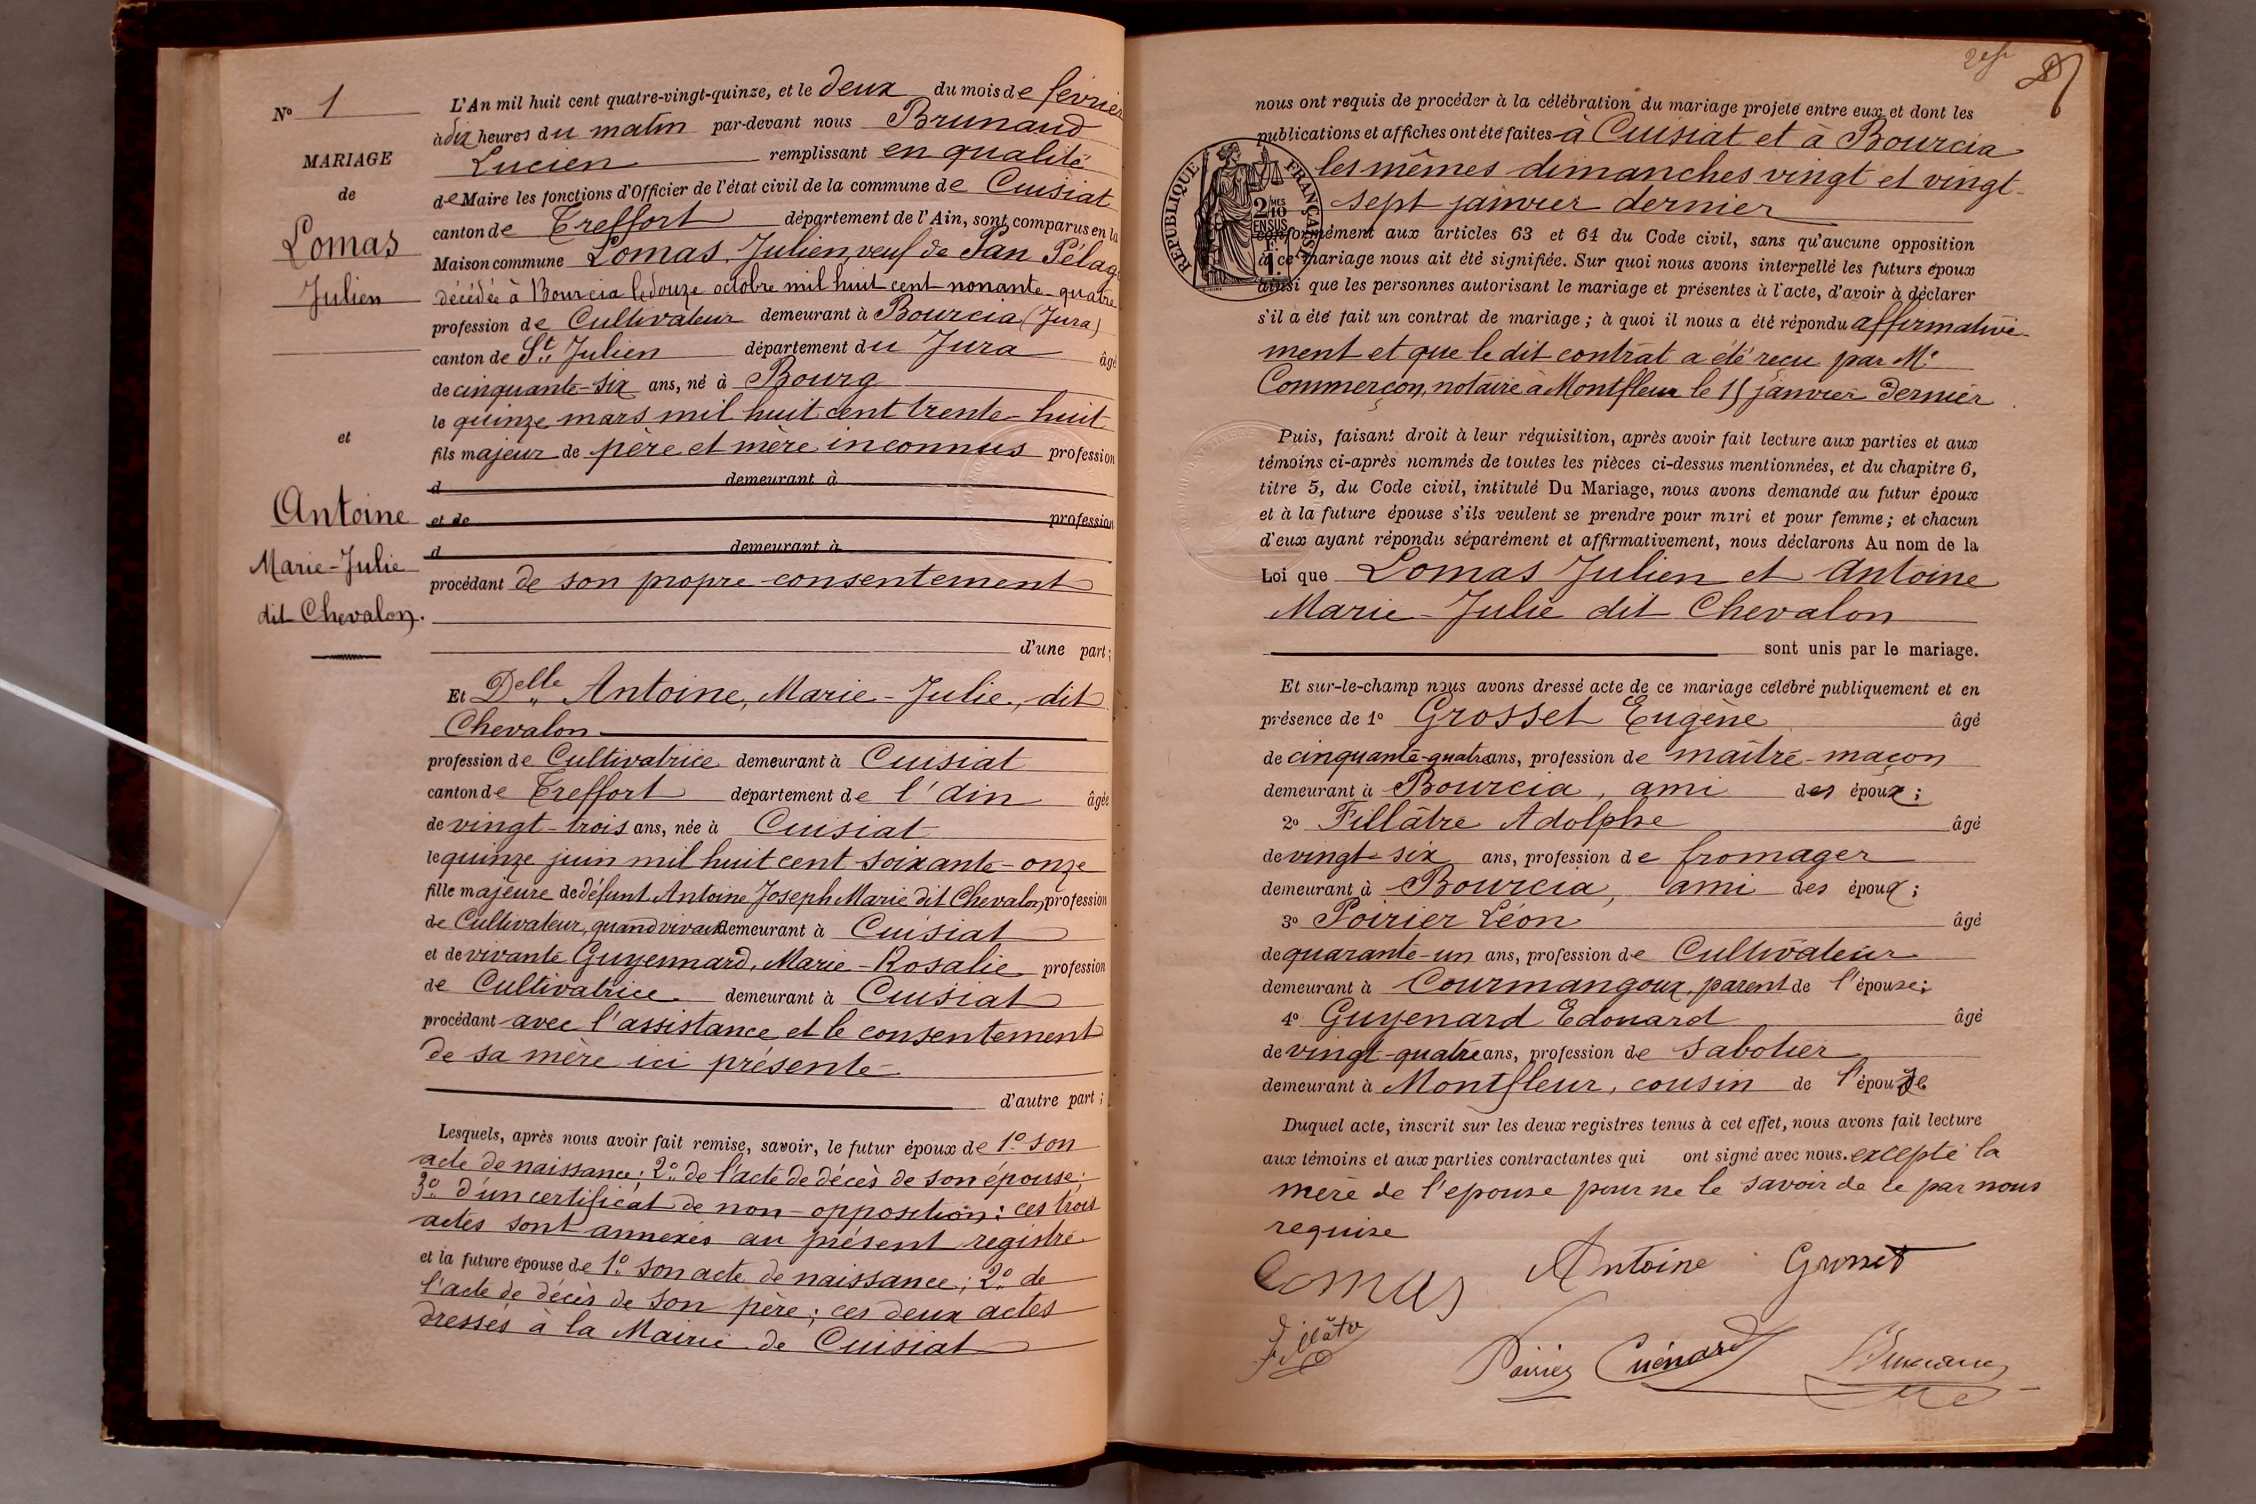 N° 1
MARIAGE
de
Lomas
Julien
et
Antoine
Marie-Julie
dit Chevalon.
L'An mil huit cent quatre-vingt-quinze, et le deux du mois de février
à dix heures du matin par-devant nous Brunaud
Lucien remplissant en qualité
de Maire les fonctions d'Officier de l'état civil de la commune de Cuisiat
canton de Treffort département de l'Ain, sont comparus en la
Maison commune Lomas Julien, veuf de Pan Pélag
décédée à Bourcia le douze octobre mil huit cent nonante-quatre
profession de Cultivateur demeurant à Bourcia (Jura)
canton de St Julien département du Jura âgé
de cinquante-six ans, né à Bourg
le quinze mars mil huit cent trente-huit
fils majeur de père et mère inconnus profession
d demeurant à
et de profession
d demeurant à
procédant de son propre consentement
d'une part;
Et Delle Antoine, Marie-Julie, dit
Chevalon
profession de Cultivatrice demeurant à Cuisiat
canton de Treffort département de l'Ain âgée
de vingt-trois ans, née à Cuisiat
le quinze juin mil huit cent soixante-onze
fille majeure de défunt Antoine Joseph Marie dit Chevalon, profession
de Cultivateur, quand vivait demeurant à Cuisiat
et de vivante Guyennard, Marie-Rosalie profession
de Cultivatrice demeurant à Cuisiat
procédant avec l'assistance et le consentement
de sa mère ici présente
d'autre part;
Lesquels, après nous avoir fait remise, savoir, le futur époux de 1° son
acte de naissance; 2° de l'acte de décès de son épouse;
3° d'un certificat de non-opposition: ces trois
actes sont annexés au présent registre
et la future épouse de 1° son acte de naissance; 2° de
l'acte de décès de son père; ces deux actes
dressés à la Mairie de Cuisiat
nous ont requis de procéder à la célébration du mariage projeté entre eux et dont les
publications et affiches ont été faites à Cuisiat et à Bourcia
les mêmes dimanches vingt et vingt-
sept janvier dernier
RÉPUBLIQUE FRANÇAISE
2/10 MES
EN SUS
1 F.
conformément aux articles 63 et 64 du Code civil, sans qu'aucune opposition
à ce mariage nous ait été signifiée. Sur quoi nous avons interpellé les futurs époux
ainsi que les personnes autorisant le mariage et présentes à l'acte, d'avoir à déclarer
s'il a été fait un contrat de mariage; à quoi il nous a été répondu affirmative-
ment et que le dit contrat a été reçu par Me
Commerçon, notaire à Montfleur le 15 janvier dernier
Puis, faisant droit à leur réquisition, après avoir fait lecture aux parties et aux
témoins ci-après nommés de toutes les pièces ci-dessus mentionnées, et du chapitre 6,
titre 5, du Code civil, intitulé Du Mariage, nous avons demandé au futur époux
et à la future épouse s'ils veulent se prendre pour mari et pour femme; et chacun
d'eux ayant répondu séparément et affirmativement, nous déclarons Au nom de la
Loi que Lomas Julien et Antoine
Marie-Julie dit Chevalon
sont unis par le mariage.
Et sur-le-champ nous avons dressé acte de ce mariage célébré publiquement et en
présence de 1° Grosset Eugène âgé
de cinquante-quatre ans, profession de maître-maçon
demeurant à Bourcia, ami des époux;
2° Fillâtre Adolphe âgé
de vingt-six ans, profession de fromager
demeurant à Bourcia, ami des époux;
3° Poirier Léon âgé
de quarante-un ans, profession de Cultivateur
demeurant à Courmangoux, parent de l'épouse;
4° Guyenard Edouard âgé
de vingt-quatre ans, profession de sabotier
demeurant à Montfleur, cousin de l'épouse
Duquel acte, inscrit sur les deux registres tenus à cet effet, nous avons fait lecture
aux témoins et aux parties contractantes qui ont signé avec nous. excepté la
mère de l'épouse pour ne le savoir de ce par nous
requise
Lomas Antoine Grosset
Fillâtre Poirier Guénard Brunaud